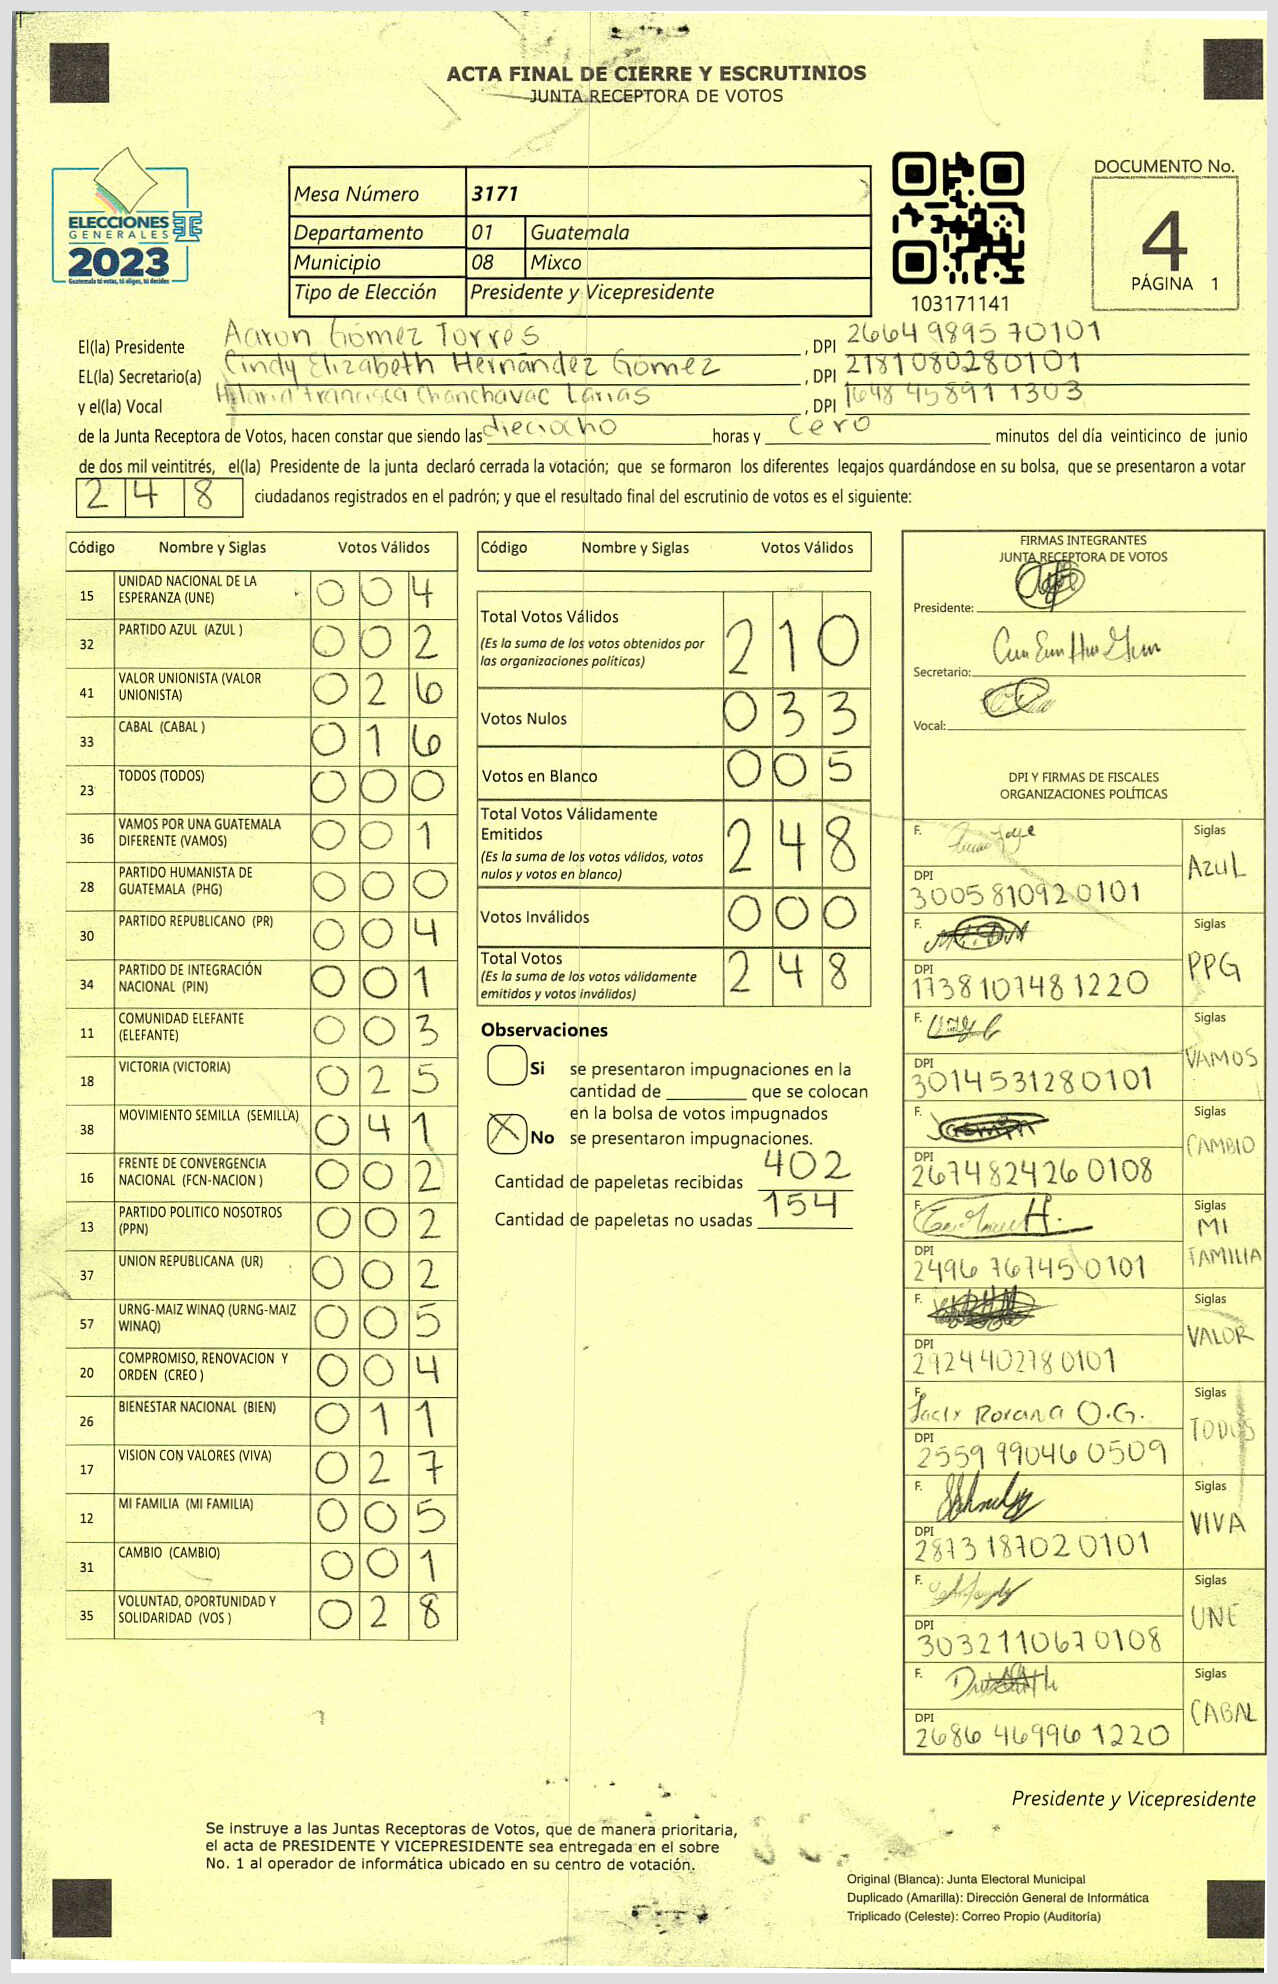 ACTA FINAL DE CIERRE Y ESCRUTINIOS
JUNTA RECEPTORA DE VOTOS
ELECCIONES
GENERALES
2023
Guatemala tú votas, tú eliges, tú decides
Mesa Número 3171
Departamento 01 Guatemala
Municipio 08 Mixco
Tipo de Elección Presidente y Vicepresidente
103171141
DOCUMENTO No.
4
PÁGINA 1
El(la) Presidente Aaron Gómez Torres , DPI 2664 9895 70101
EL(la) Secretario(a) Cindy Elizabeth Hernández Gómez , DPI 2181080280101
y el(la) Vocal Hilaria Francisca Chanchavac Larias , DPI 1648 45891 1303
de la Junta Receptora de Votos, hacen constar que siendo las dieciocho horas y cero minutos del día veinticinco de junio
de dos mil veintitrés, el(la) Presidente de la junta declaró cerrada la votación; que se formaron los diferentes legajos guardándose en su bolsa, que se presentaron a votar
248 ciudadanos registrados en el padrón; y que el resultado final del escrutinio de votos es el siguiente:
Código Nombre y Siglas Votos Válidos
15 UNIDAD NACIONAL DE LA ESPERANZA (UNE) 004
32 PARTIDO AZUL (AZUL ) 002
41 VALOR UNIONISTA (VALOR UNIONISTA) 026
33 CABAL (CABAL ) 016
23 TODOS (TODOS) 000
36 VAMOS POR UNA GUATEMALA DIFERENTE (VAMOS) 001
28 PARTIDO HUMANISTA DE GUATEMALA (PHG) 000
30 PARTIDO REPUBLICANO (PR) 004
34 PARTIDO DE INTEGRACIÓN NACIONAL (PIN) 001
11 COMUNIDAD ELEFANTE (ELEFANTE) 003
18 VICTORIA (VICTORIA) 025
38 MOVIMIENTO SEMILLA (SEMILLA) 041
16 FRENTE DE CONVERGENCIA NACIONAL (FCN-NACION ) 002
13 PARTIDO POLITICO NOSOTROS (PPN) 002
37 UNION REPUBLICANA (UR) 002
57 URNG-MAIZ WINAQ (URNG-MAIZ WINAQ) 005
20 COMPROMISO, RENOVACION Y ORDEN (CREO ) 004
26 BIENESTAR NACIONAL (BIEN) 011
17 VISION CON VALORES (VIVA) 027
12 MI FAMILIA (MI FAMILIA) 005
31 CAMBIO (CAMBIO) 001
35 VOLUNTAD, OPORTUNIDAD Y SOLIDARIDAD (VOS ) 028
Código Nombre y Siglas Votos Válidos
Total Votos Válidos 210
(Es la suma de los votos obtenidos por
las organizaciones políticas)
Votos Nulos 033
Votos en Blanco 005
Total Votos Válidamente
Emitidos 248
(Es la suma de los votos válidos, votos
nulos y votos en blanco)
Votos Inválidos 000
Total Votos 248
(Es la suma de los votos válidamente
emitidos y votos inválidos)
Observaciones
Si se presentaron impugnaciones en la
cantidad de ________ que se colocan
en la bolsa de votos impugnados
X No se presentaron impugnaciones.
Cantidad de papeletas recibidas 402
Cantidad de papeletas no usadas 154
FIRMAS INTEGRANTES
JUNTA RECEPTORA DE VOTOS
Presidente:
Secretario:
Vocal:
DPI Y FIRMAS DE FISCALES
ORGANIZACIONES POLÍTICAS
F. Siglas AZUL
DPI 3005810920101
F. Siglas PPG
DPI 1738107481220
F. Siglas VAMOS
DPI 3014531280101
F. Siglas CAMBIO
DPI 2674824260108
F. Siglas MI FAMILIA
DPI 2496 76745 0101
F. Siglas VALOR
DPI 2924402780101
F. Roxana O.G. Siglas TODOS
DPI 2559 99046 0509
F. Siglas VIVA
DPI 2873 18702 0101
F. Siglas UNE
DPI 3032110670108
F. Siglas CABAL
DPI 2686 46996 1220
Presidente y Vicepresidente
Se instruye a las Juntas Receptoras de Votos, que de manera prioritaria,
el acta de PRESIDENTE Y VICEPRESIDENTE sea entregada en el sobre
No. 1 al operador de informática ubicado en su centro de votación.
Original (Blanca): Junta Electoral Municipal
Duplicado (Amarilla): Dirección General de Informática
Triplicado (Celeste): Correo Propio (Auditoría)